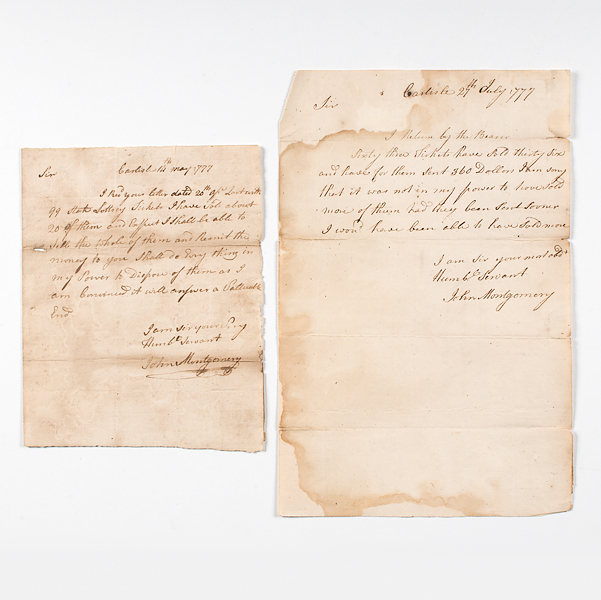 Sir Carlisle 14th may 1777
I Recd your letter dated 20th Apl Last with
99 State Lottery Tickets I have Sol about
20 of them and Expect I shall be able to
Sell the whole of them and Remit the
money to you Shall do Evry thing in
my Power to Dispose of them as I
am Convinced it will answer a Valuable
End
I am sir your Very
Humbe Servant
John Montgomery
Carlisle 27th July 1777
Sir
I Return by the Bearer
Sixty three Tickets have Sold thirty Six
and have for them Sent 360 Dollars I can say
that it was not in my power to have Sold
more of them had they been Sent Sooner
I woud have been able to have Sold more
I am Sir your most obdt
Humbe Servant
John Montgomery